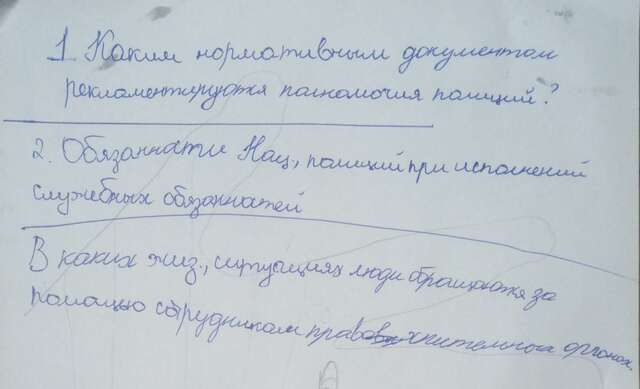 1. Каким нормативным документом
рекламентируются полномочия полиций?
2. Обязанности Нац, полиций при исполнений
служебных обязанностей
В каких жиз., ситуациях люди обращаются за
помощью сотрудникам право